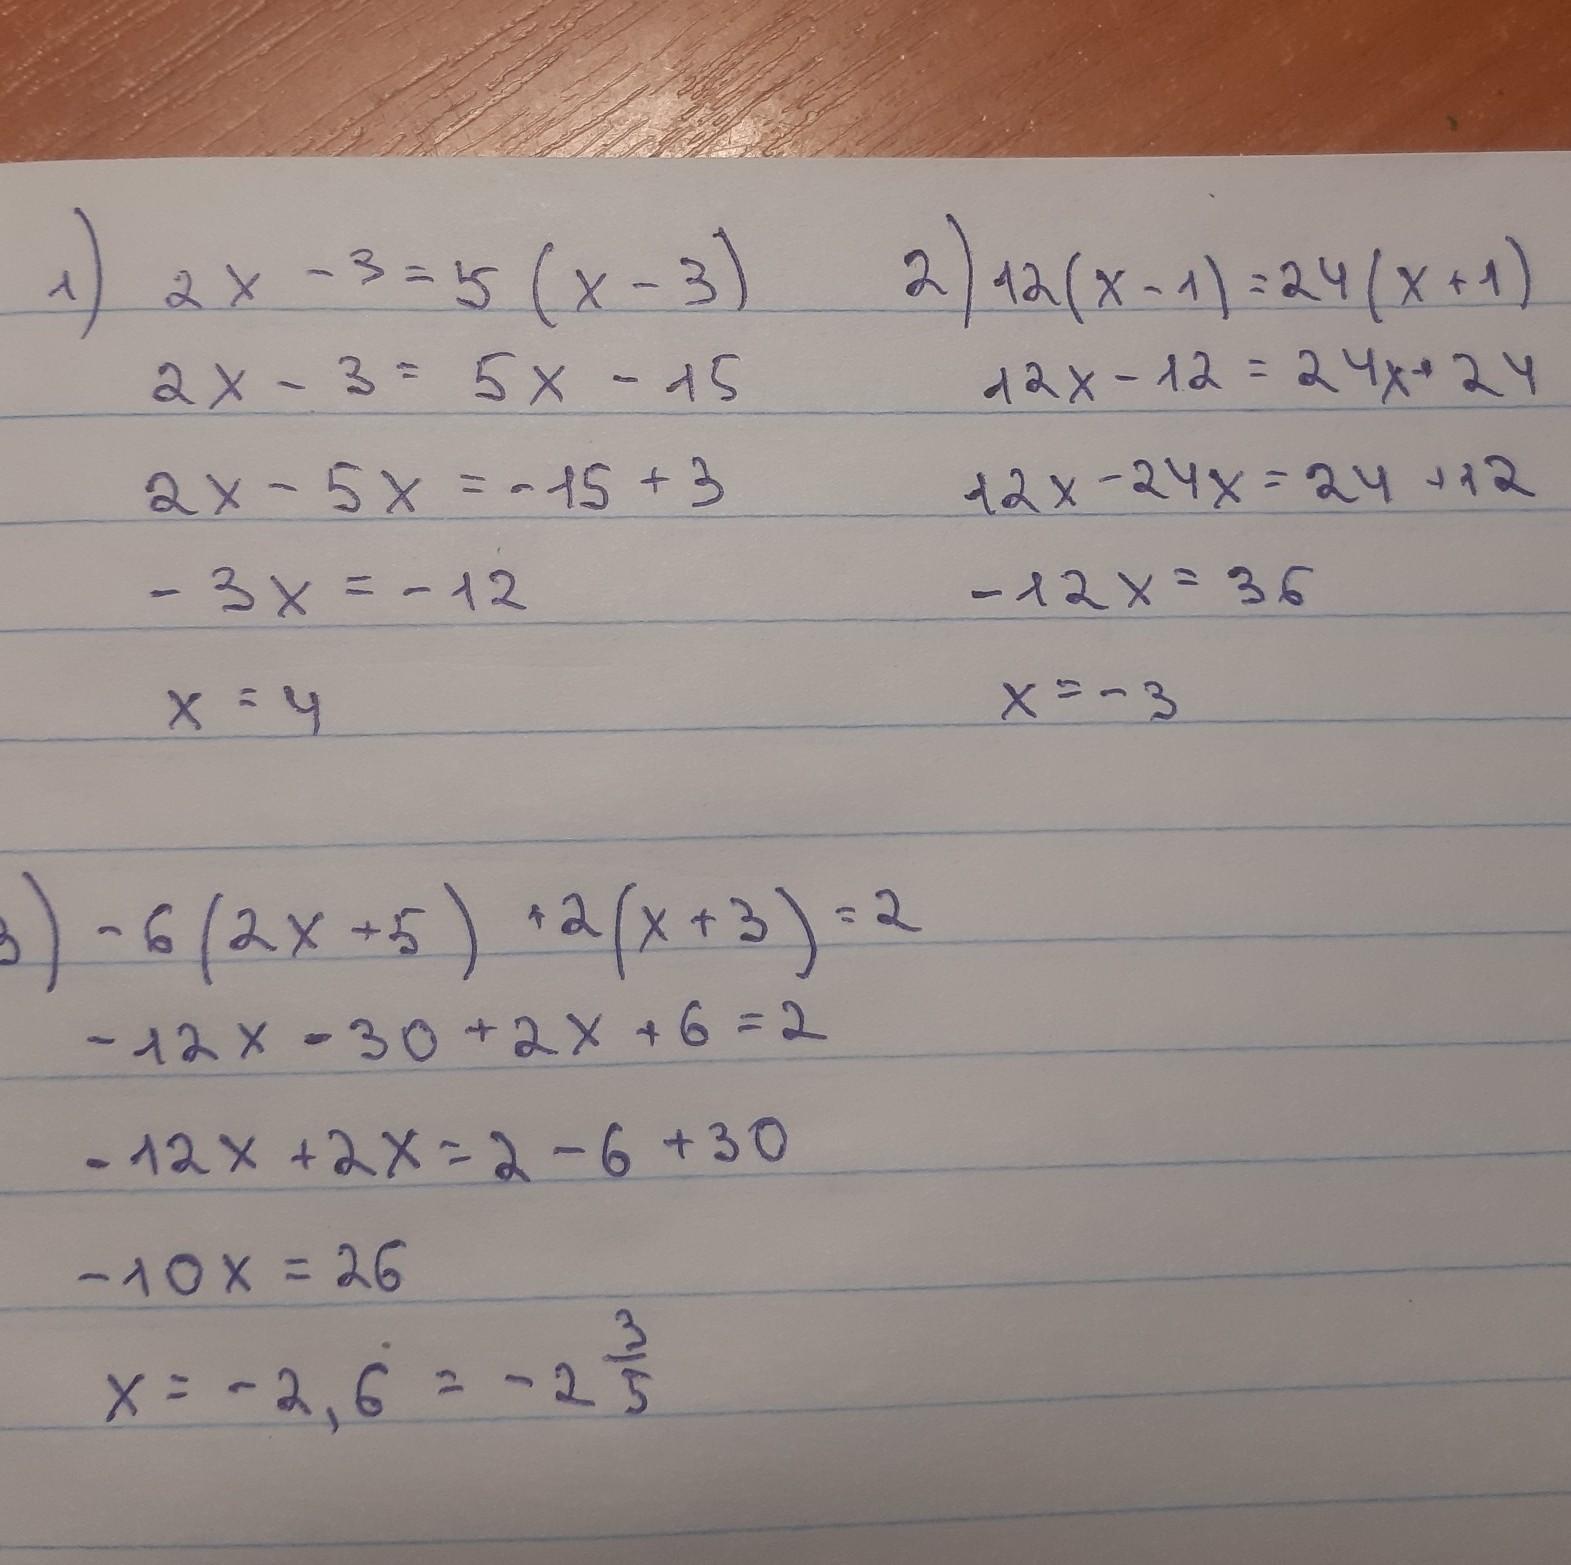 1) 2x - 3 = 5 (x - 3)
2x - 3 = 5x - 15
2x - 5x = -15 + 3
- 3x = -12
x = 4
2) 12(x - 1) = 24(x + 1)
12x - 12 = 24x + 24
12x - 24x = 24 + 12
-12x = 36
x = -3
3) -6(2x + 5) + 2(x + 3) = 2
-12x - 30 + 2x + 6 = 2
-12x + 2x = 2 - 6 + 30
-10x = 26
x = -2,6 = -2 3/5